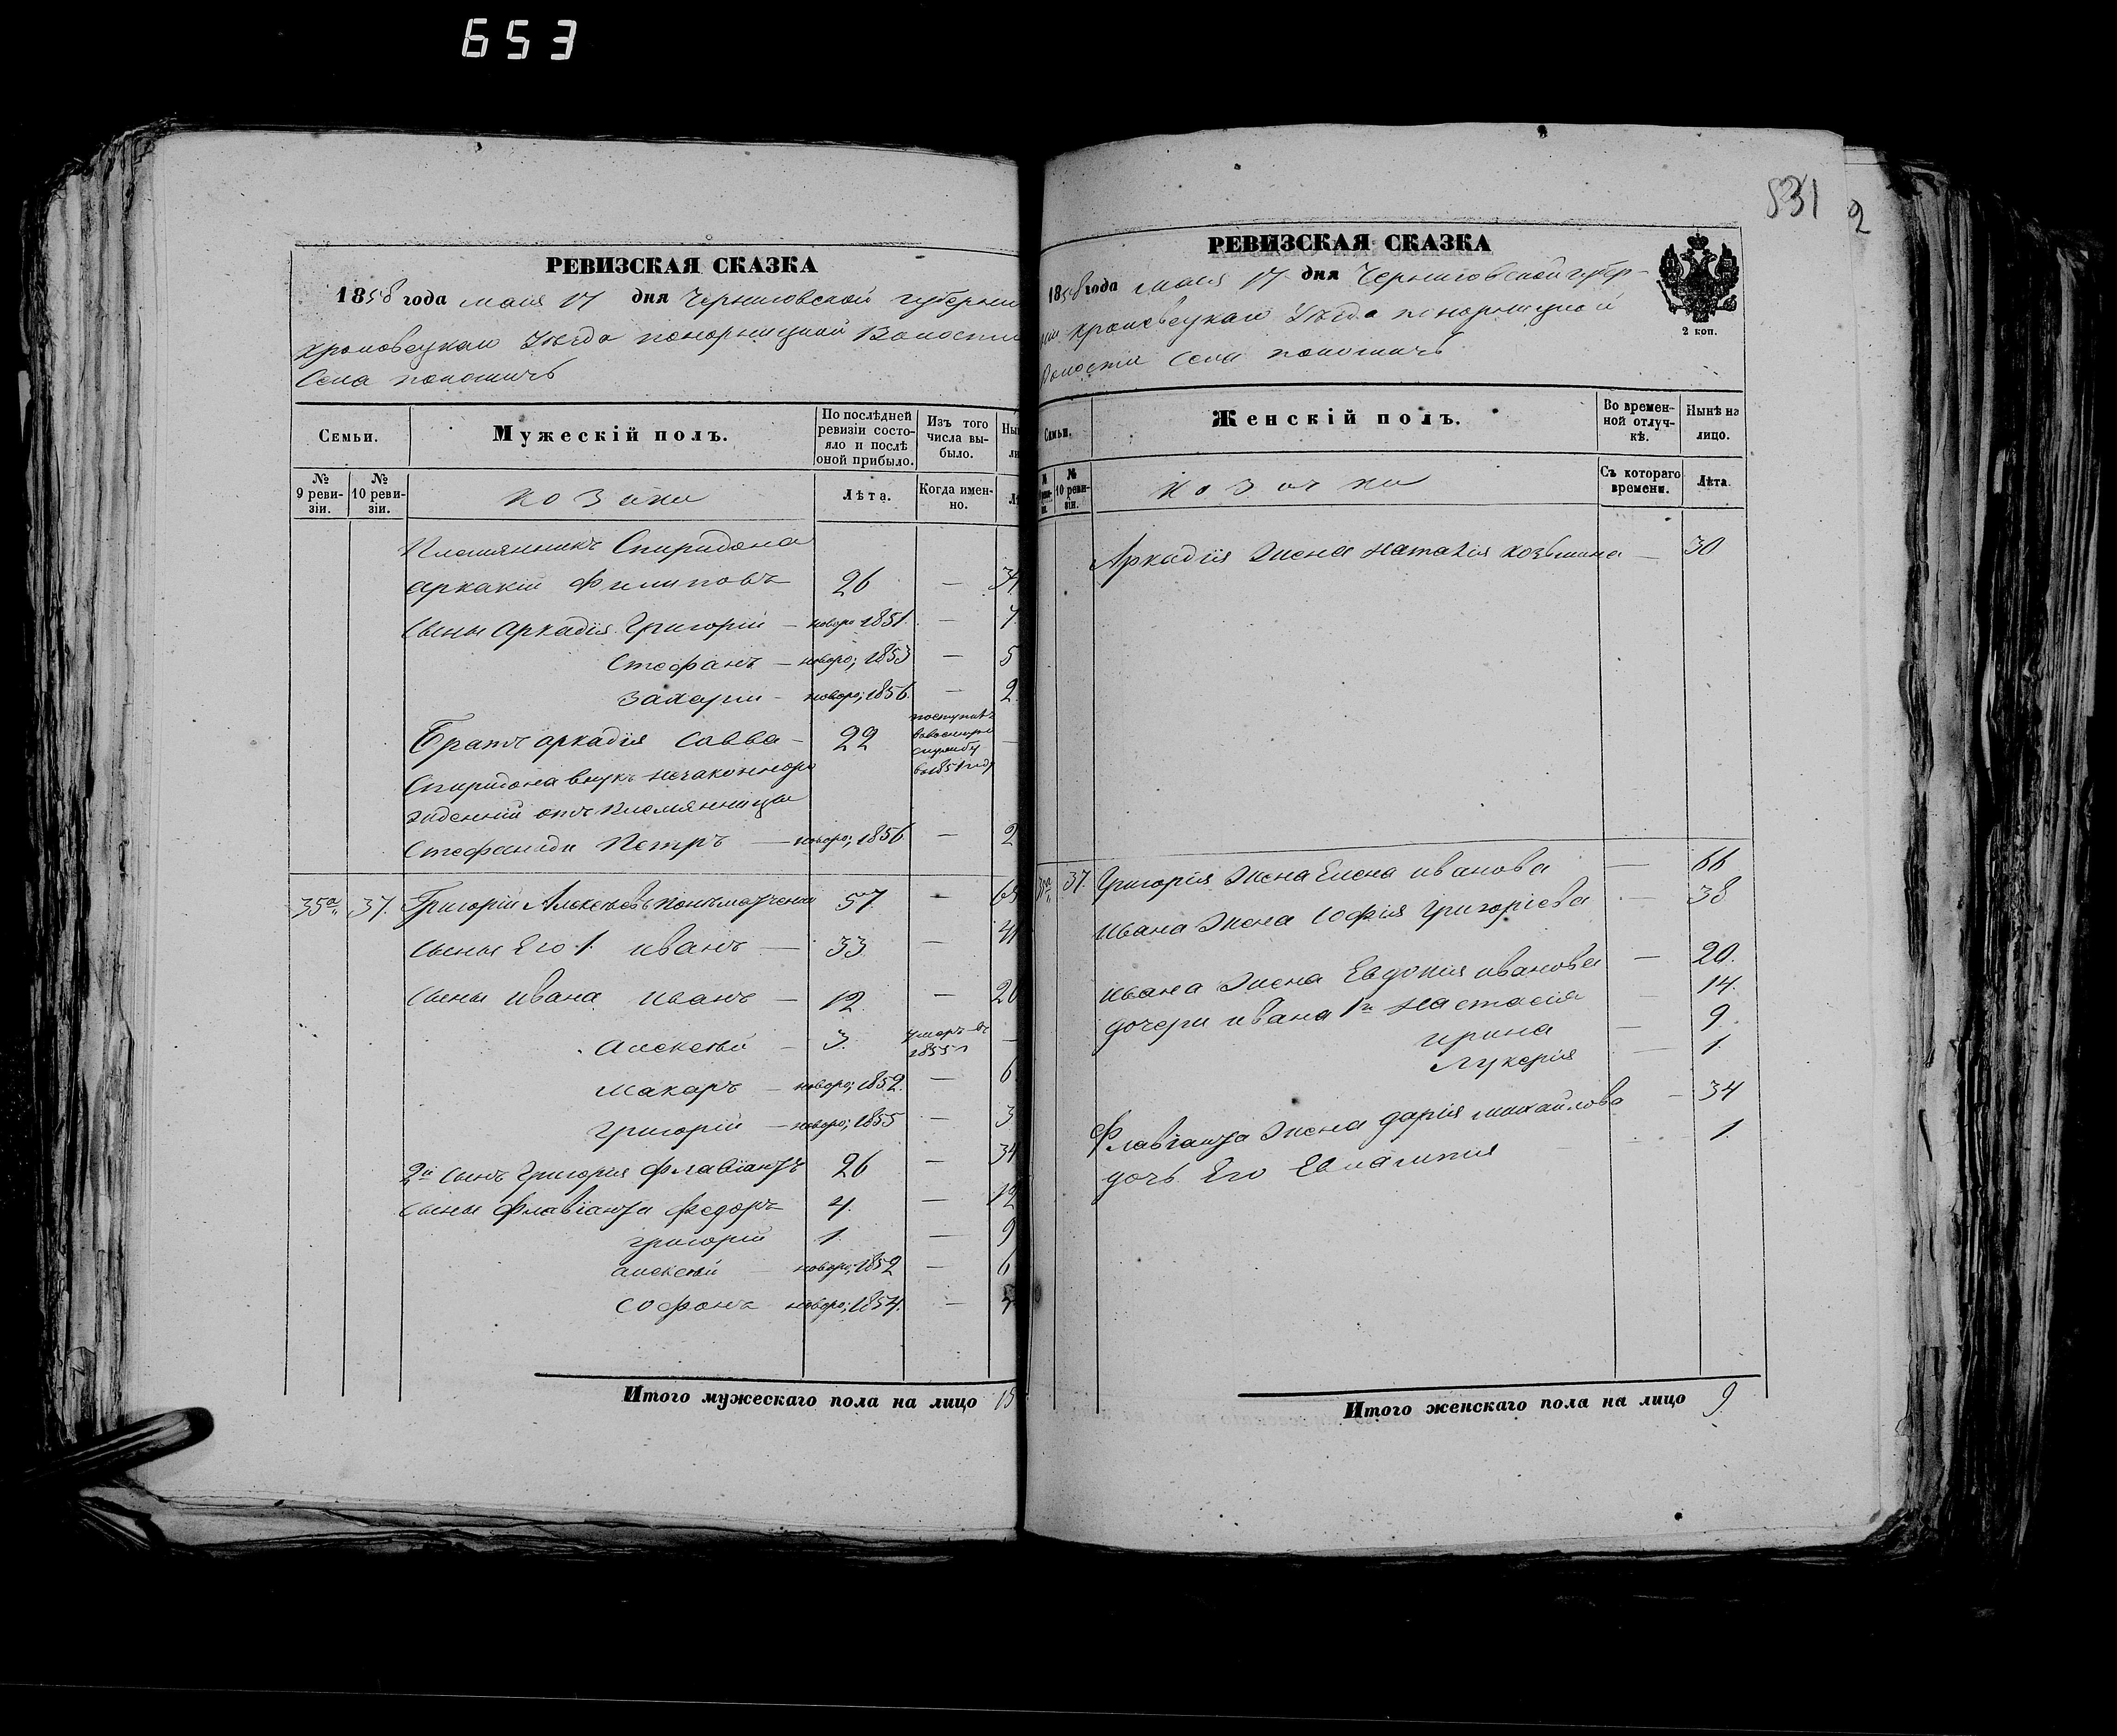 653
РЕВИЗСКАЯ СКАЗКА
1858 года мая 17 дня Черниговской губерни
кролевецкаго уѣзда понорницкой Волости
Села
Семьи. Мужескій полъ. По послѣдней ревизіи состояло и послѣ оной прибыло. Изъ того числа выбыло. Нын
№ 9 ревизіи. № 10 ревизіи. козаки Лѣта. Когда именно.
Племянникъ Спиридона
аркакій Филиповъ 26 — 34
Сыны Аркадія Григорій — новоро 1851 — 7
Стефанъ — новоро; 1853 — 5
Захарии — новоро; 1856. — 2
Братъ аркадія Савва — 22 поступилъ службу 1851 —
Спиридона внукъ незаконноро
жденній отъ племянницы
Стефаниди Петръ — новоро; 1856 — 2
35а 37. Григорій Алексѣевъ 57. — 65
Сыны Его 1. иванъ — 33 — 41
Сыны ивана иванъ — 12. — 20
Алексѣй — 3. умеръ въ 1855 г —
Макаръ — новоро; 1852. — 6
Григорій — новоро; 1855 — 3
2й Сынъ Григорія 26 — 34
Сыны Федоръ 4. — 12
григорій 1. — 9
алексѣй — новоро; 1852 — 6
Софонъ новоро; 1854. —
Итого мужескаго пола на лицо 15
831
2
РЕВИЗСКАЯ СКАЗКА
1858 года мая 17 дня Черниговской губер-
ніи кролевецкаго уѣзда понорницкой
Волости Села
2 коп.
Семьи. Женскій полъ. Во временной отлучкѣ. Нынѣ на лицо.
№ № 10 ревизіи. козачки Съ котораго времени. Лѣта.
Аркадія жена Наталія козьмина — 30
37. Григорія жена Елена иванова — 66
ивана жена Софія Григоріева — 38
ивана жена Евдокия иванова — 20.
дочери ивана 1я Настасія 14.
ирина — 9.
Лукерія — 1.
жена дарія михайлова — 34
дочь Его 1.
Итого женскаго пола на лицо 9.